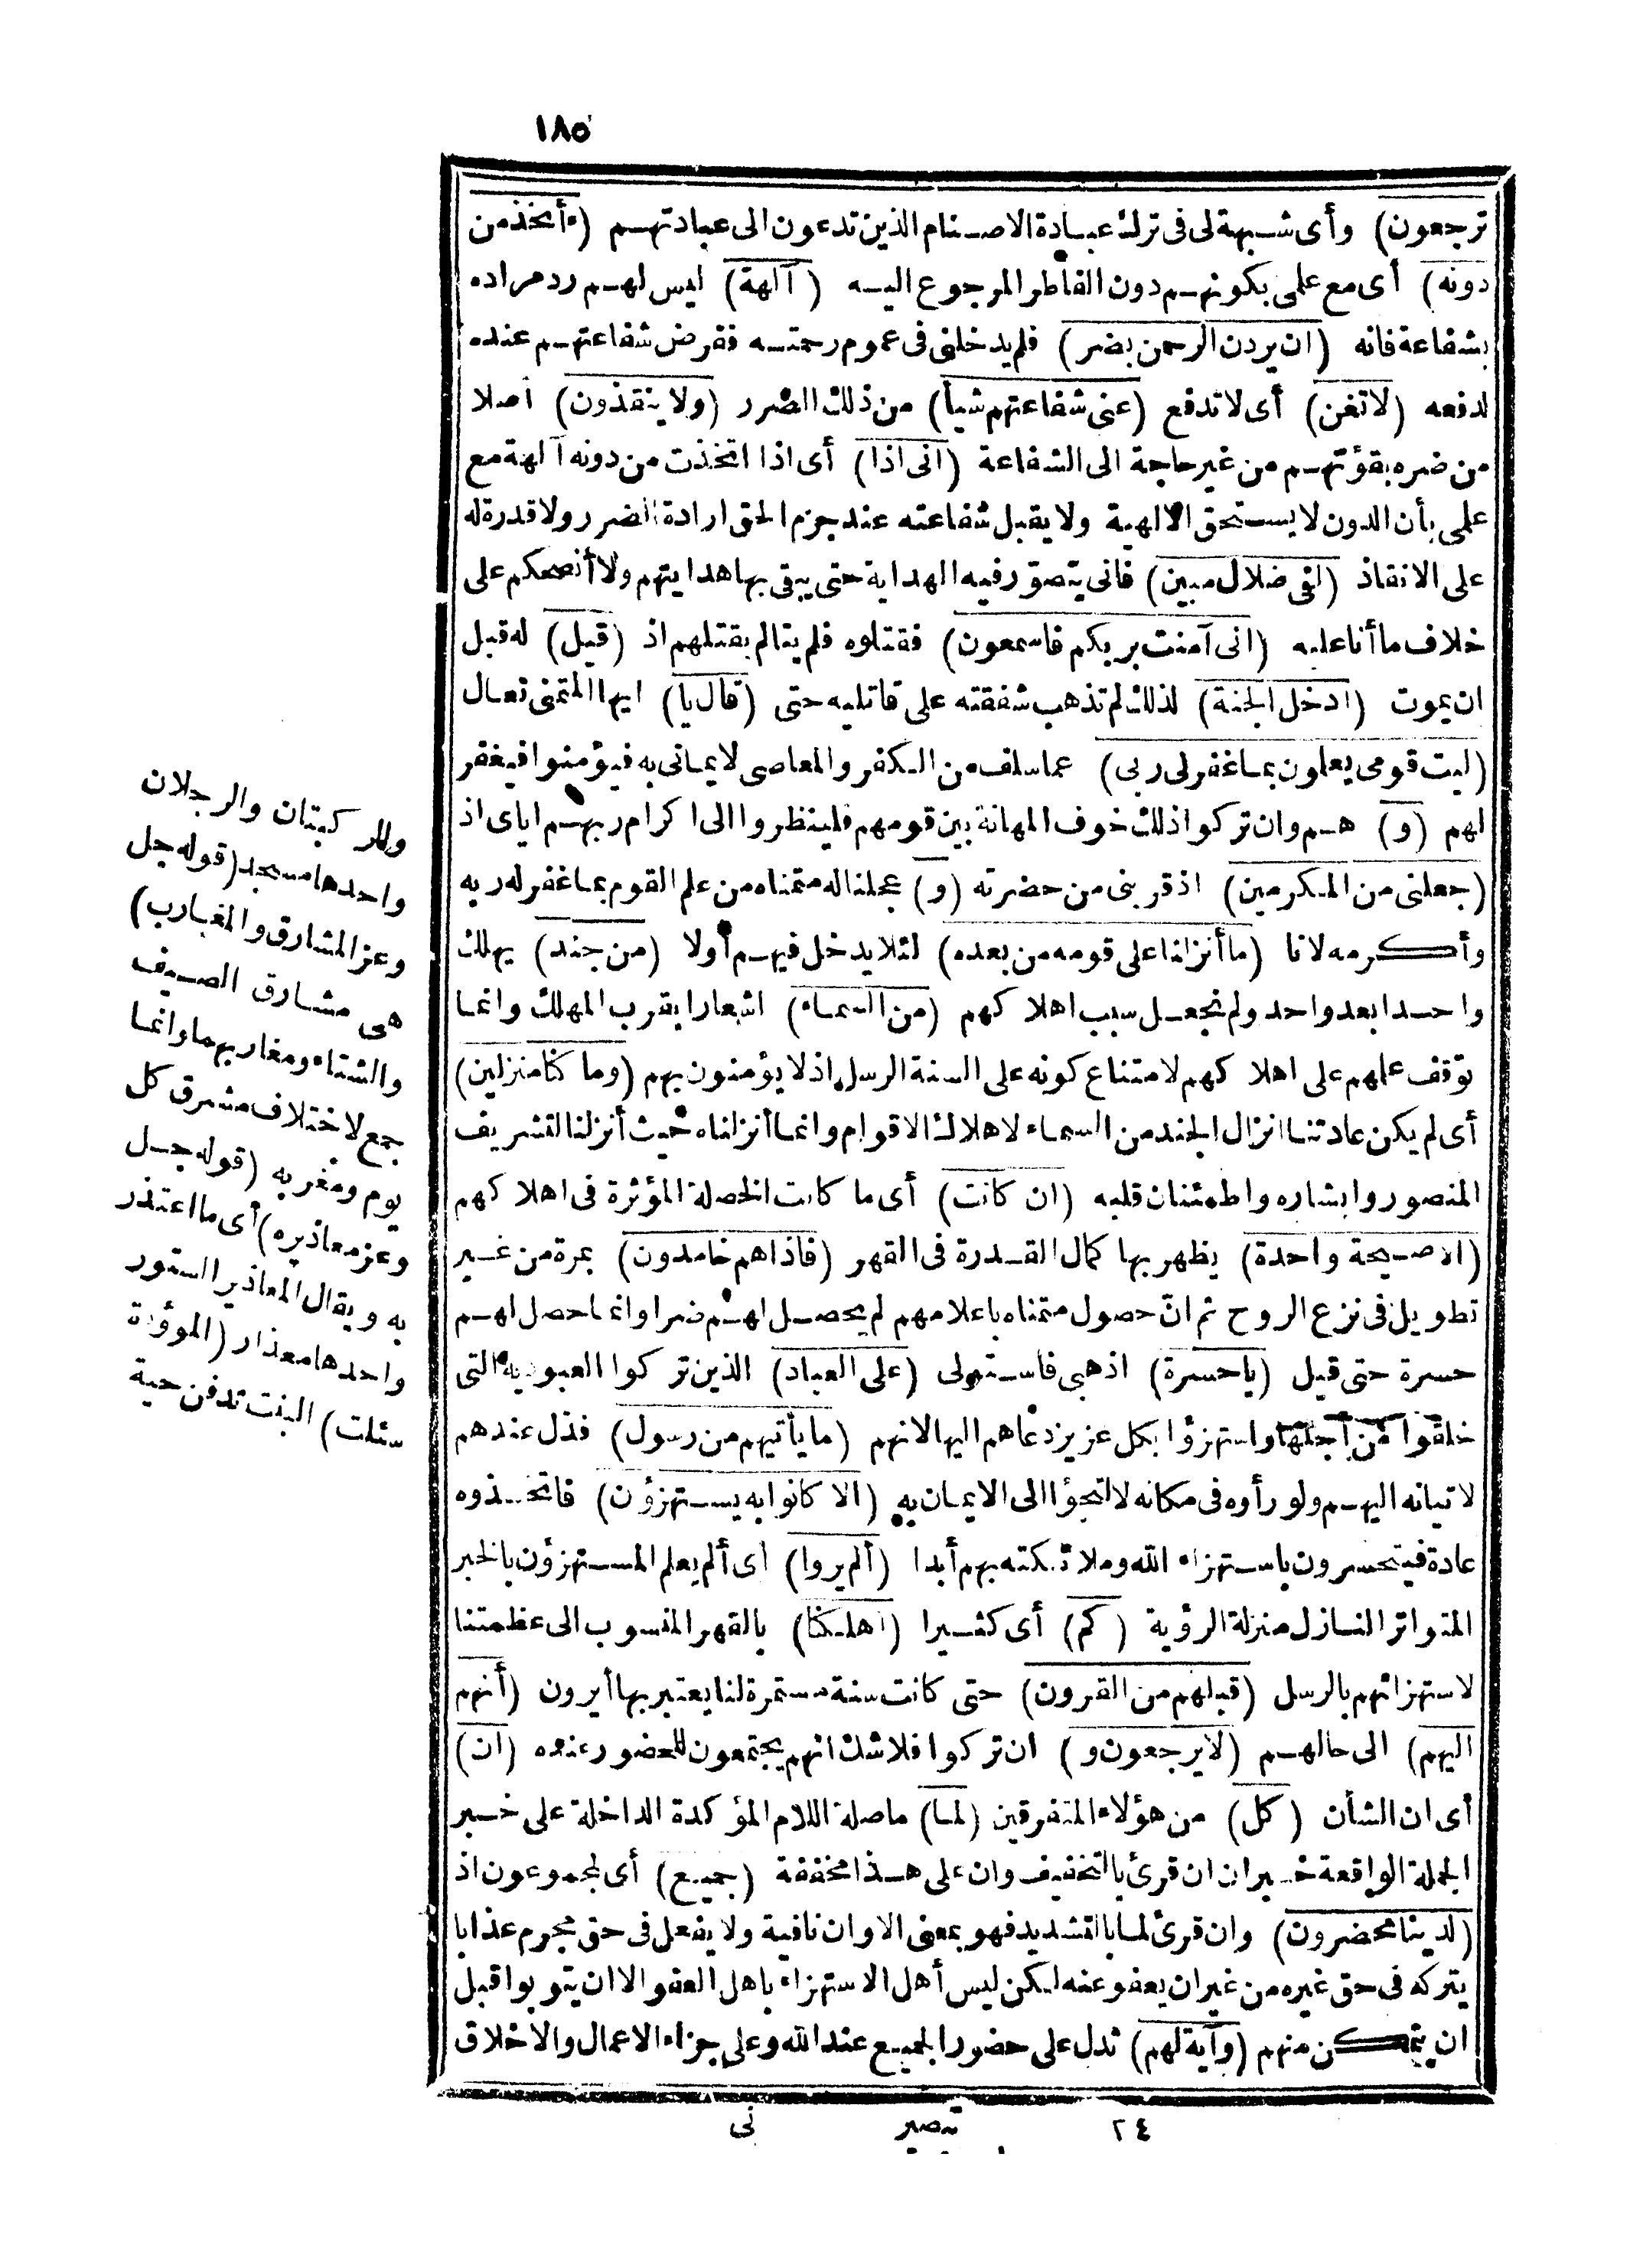 ١٨٥
ترجعون) وأى شبهة لى فى ترك عبادة الاصنام الذين تدعون الى عبادتهم (ءأتخذ من
دونه) أى مع علمى بكونهم دون الفاطر المرجوع اليه (آلهة) ليس لهم رد مراده
بشفاعة فانه (ان يردن الرحمن بضر) فلم يدخلنى فى عموم رحمته ففرض شفاعتهم عنده
لدفعه (لا تغن) أى لا تدفع (عنى شفاعتهم شيأ) من ذلك الضرر (ولا ينقذون) أصلا
من ضره بقوّتهم من غير حاجة الى الشفاعة (انى اذا) أى اذا اتخذت من دونه آلهة مع
علمى بأن الدون لا يستحق الالهية ولا يقبل شفاعته عند جزم الحق ارادة الضرر ولا قدرة له
على الانقاذ (لفى ضلال مبين) فانى يتصوّر فيه الهداية حتى يبقى بها هدايتهم ولا أنصحكم على
خلاف ما أنا عليه (انى آمنت بربكم فاسمعون) فقتلوه فلم يتالم بقتلهم اذ (قيل) له قبل
ان يموت (ادخل الجنة) لذلك لم تذهب شفقته على قاتليه حتى (قال يا) ايها المتمنى تعال
(ليت قومى يعلمون بما غفر لى ربى) عما سلف من الكفر والمعاصى لايمانى به فيؤمنوا فيغفر
لهم (و) هم وان تركوا ذلك خوف المهانة بين قومهم فلينظروا الى اكرام ربهم اياى اذ
(جعلنى من المكرمين) اذ قربنى من حضرته (و) عجلنا له متمناه من علم القوم بما غفر له ربه
وأكرمه لانا (ما أنزلنا على قومه من بعده) لئلا يدخل فيهم أولا (من جند) يهلك
واحدا بعد واحد ولم نجعل سبب اهلاكهم (من السماء) اشعارا بقرب المهلك وانما
توقف علمهم على اهلاكهم لامتناع كونه على السنة الرسل اذ لا يؤمنون بهم (وما كنا منزلين)
أى لم يكن عادتنا انزال الجند من السماء لاهلاك الاقوام وانما أنزلناه حيث أنزلنا لتشريف
المنصور وابشاره واطمئنان قلبه (ان كانت) أى ما كانت الخصلة المؤثرة فى اهلاكهم
(الا صيحة واحدة) يظهر بها كمال القدرة فى القهر (فاذا هم خامدون) بمرة من غير
تطويل فى نزع الروح ثم انّ حصول متمناه باعلامهم لم يحصل لهم ضرا وانما حصل لهم
حسرة حتى قيل (يا حسرة) اذهبى فاستولى (على العباد) الذين تركوا العبودية التى
خلقوا من أجلها واستهزؤا بكل عزيز دعاهم اليها لانهم (ما يأتيهم من رسول) فذل عندهم
لاتيانه اليهم ولو رأوه فى مكانه لالتجؤا الى الايمان به (الا كانوا به يستهزؤن) فاتخذوه
عادة فيتحسرون باستهزاء الله وملائكته بهم أبدا (ألم يروا) أى ألم يعلم المستهزؤن بالخبر
المتواتر النازل منزلة الرؤية (كم) أى كثيرا (أهلكنا) بالقهر المنسوب الى عظمتنا
لاستهزائهم بالرسل (قبلهم من القرون) حتى كانت سنة مستمرة لنا يعتبر بها أيرون (أنهم
اليهم) الى حالهم (لا يرجعون و) ان تركوا فلا شك انهم يجتمعون للحضور عنده (ان)
أى ان الشأن (كل) من هؤلاء المتفرقين (لما) ما صلة اللام المؤكدة الداخلة على خبر
الجملة الواقعة خبر ان ان قرئ بالتخفيف وان على هذا مخففة (جميع) أى لمجموعون اذ
(لدينا محضرون) وان قرئ لما بالتشديد فهو بمعنى الا وان نافية ولا يفعل فى حق مجرم عذابا
يتركه فى حق غيره من غير ان يعفو عنه لكن ليس أهل الاستهزاء باهل العفو الا ان يتوبوا قبل
ان يتمكن منهم (وآية لهم) تدل على حضور الجميع عند الله وعلى جزاء الاعمال والاخلاق
٢٤ تبصير نى
والركبتان والرجلان
واحدها مسجد (قوله جل
وعز المشارق والمغارب)
هى مشارق الصيف
والشتاء ومغاربهما وانما
جمع لاختلاف مشرق كل
يوم ومغربه (قوله جل
وعز معاذيره) أى ما اعتذر
به ويقال المعاذير الستور
واحدها معذار (الموؤدة
سئلت) البنت تدفن حية